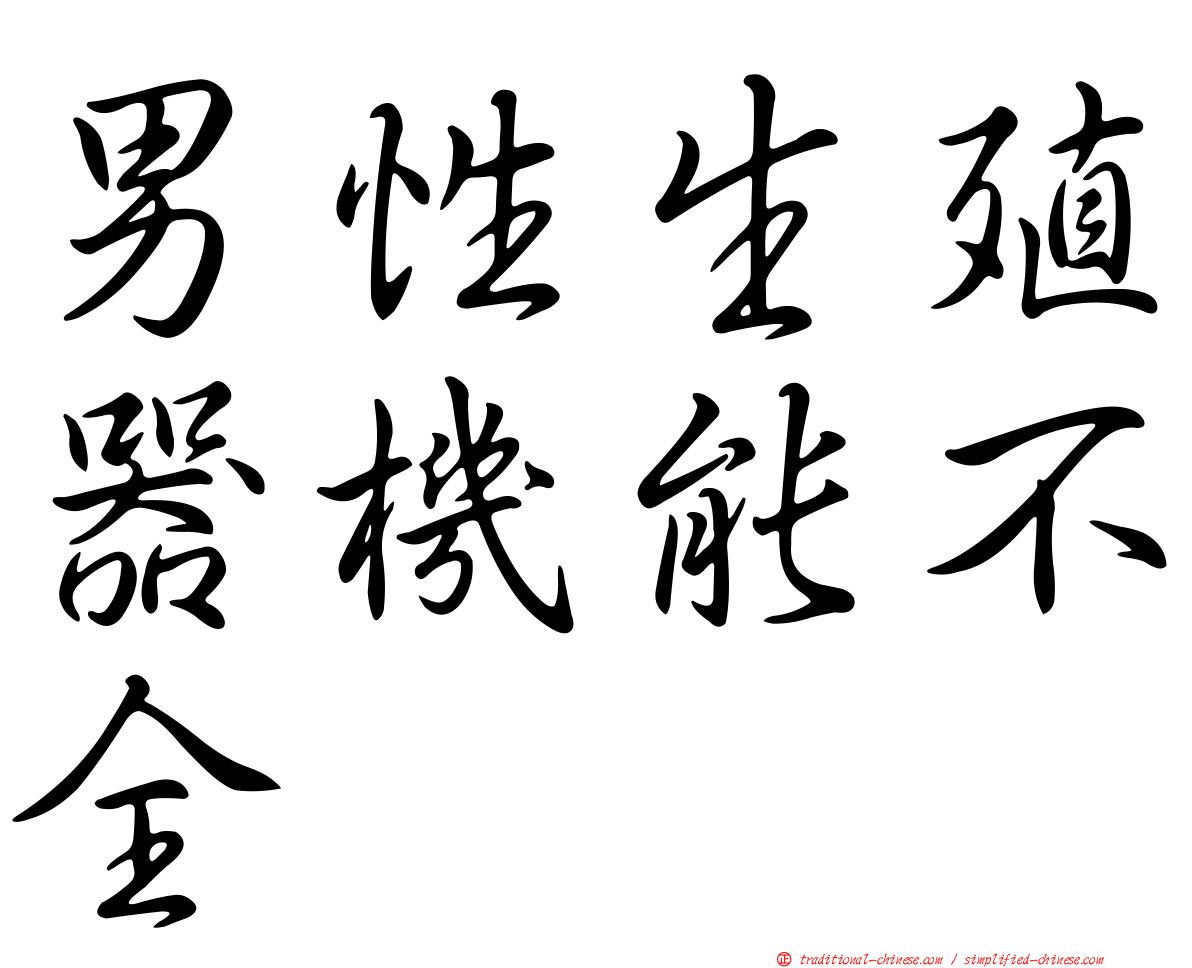 男性生殖
器機能不
全
正 traditional-chinese.com / simplified-chinese.com